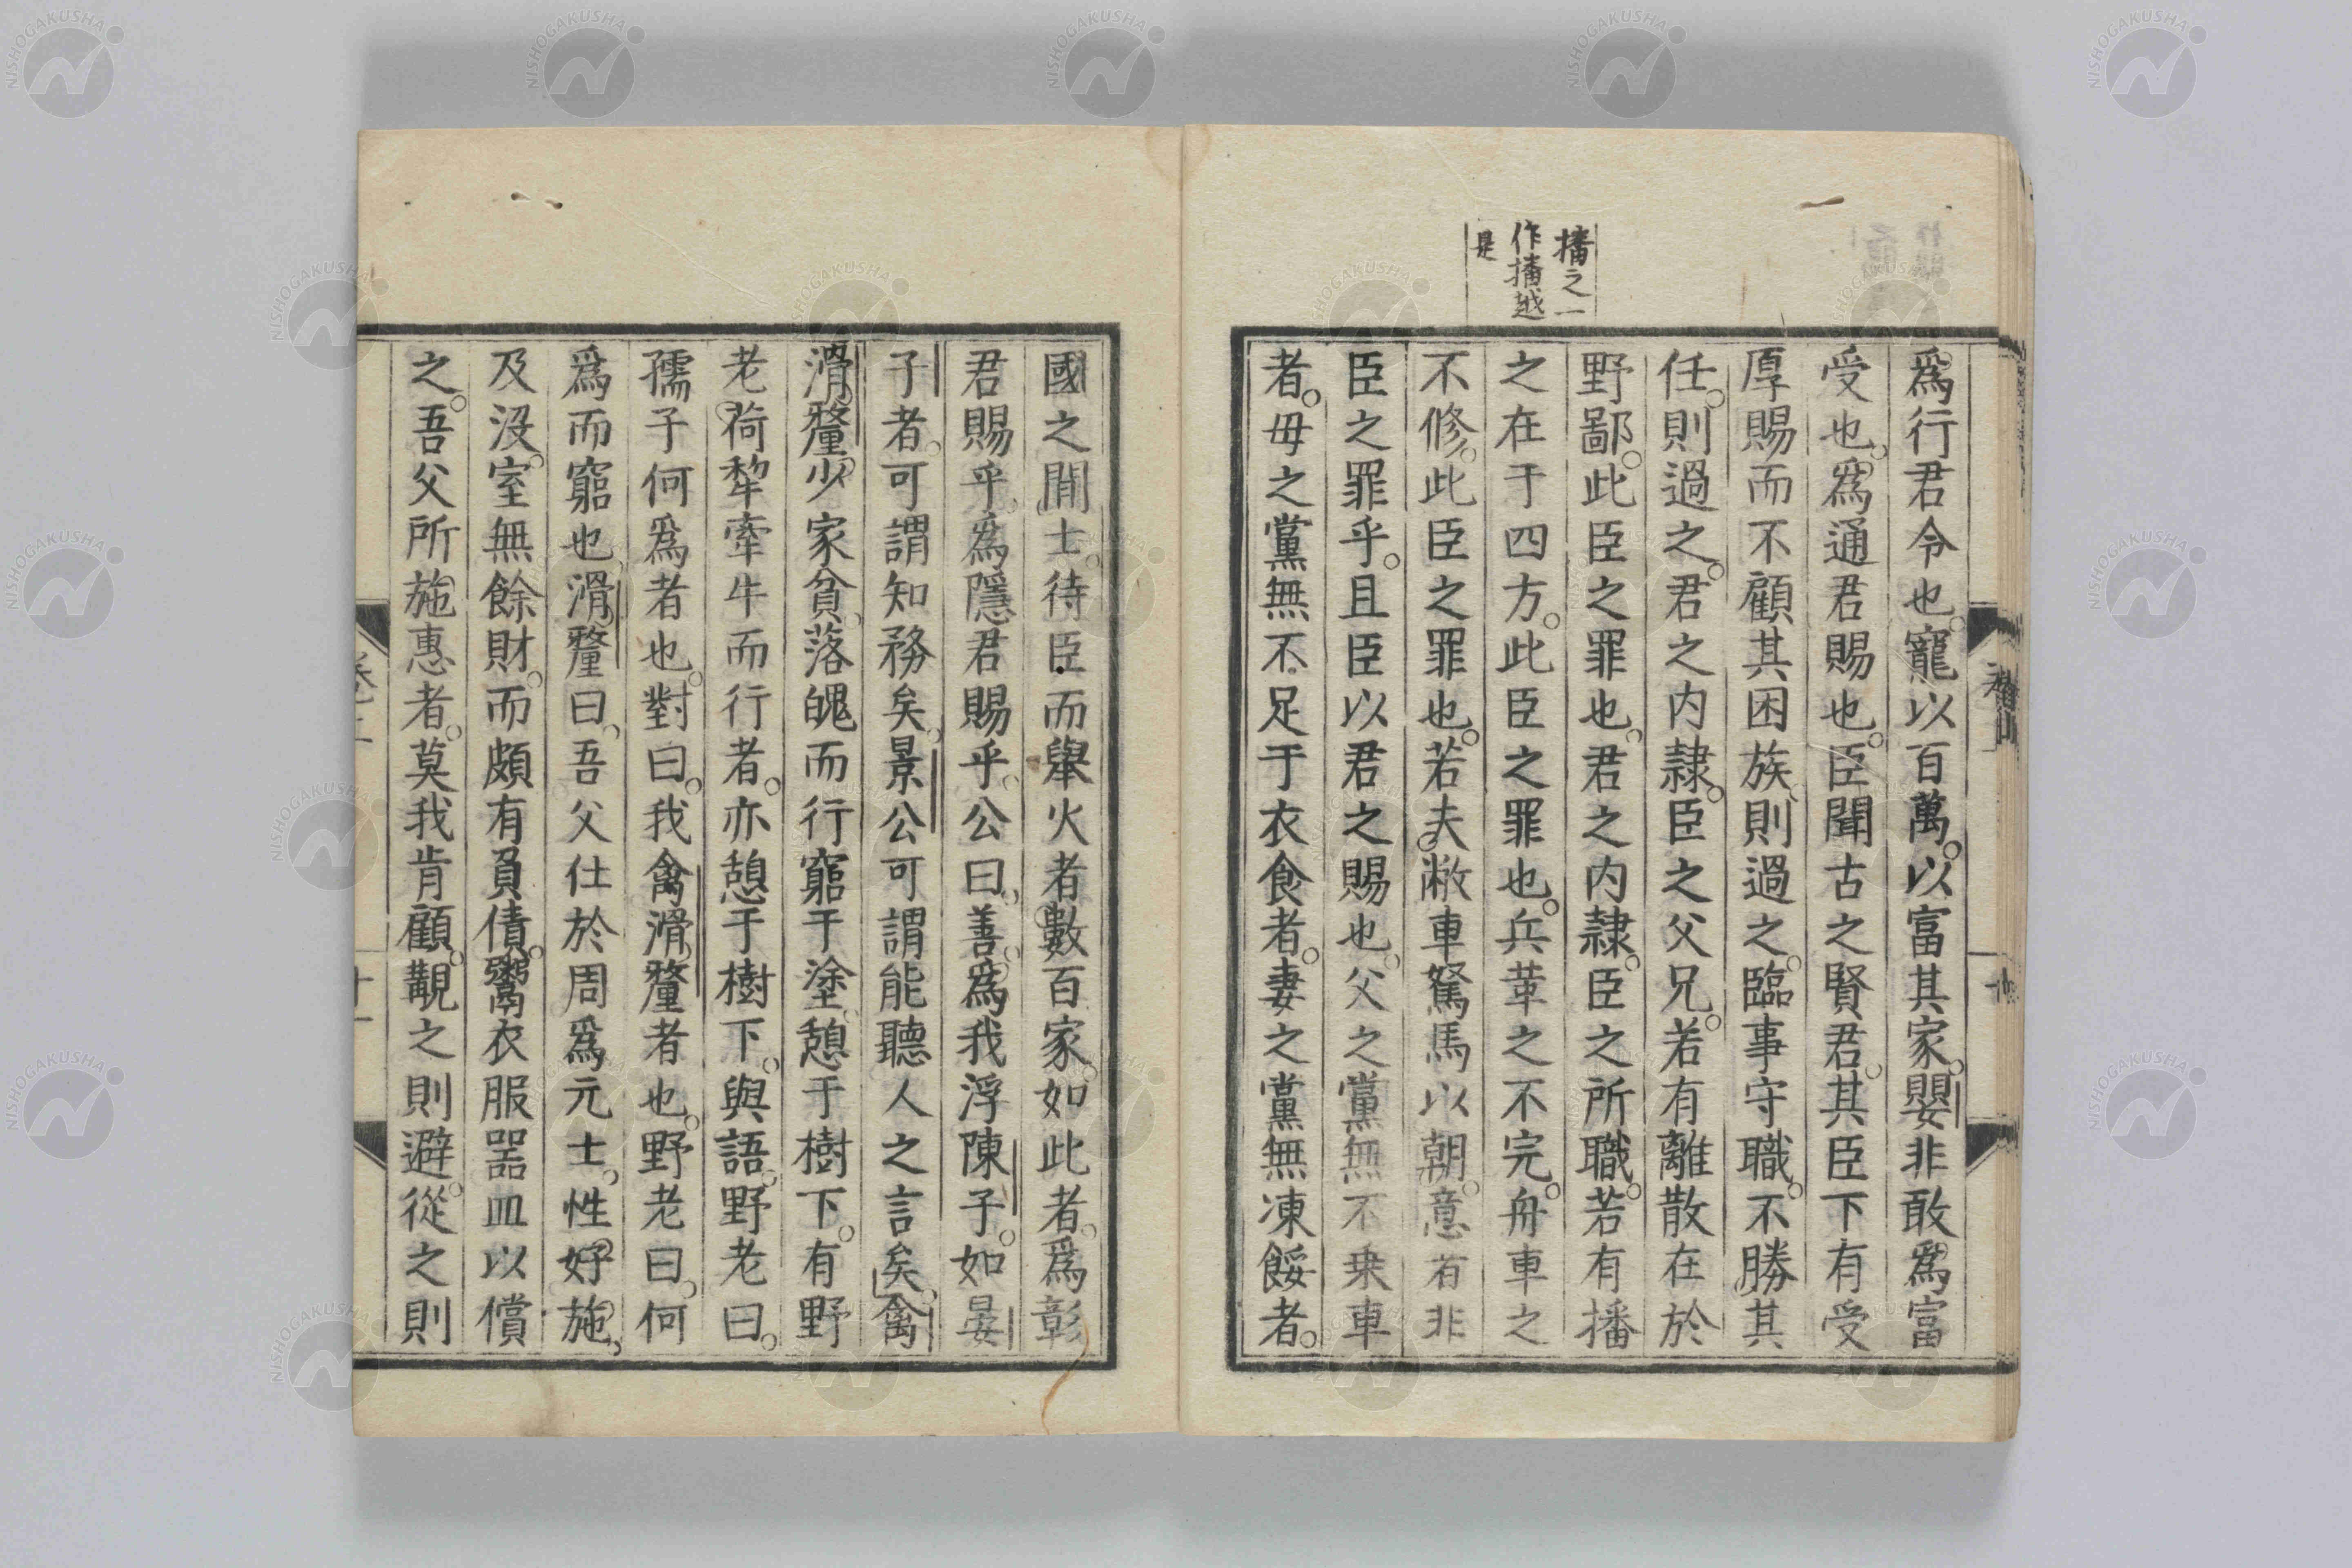 播之一
作播越
是
爲行君令也。寵以百萬。以富其家。嬰非敢爲富
受也。爲通君賜也。臣聞古之賢君。其臣下有受
厚賜而不顧其困族、則過之。臨事守職。不勝其
任。則過之。君之内隷。臣之父兄。若有離散在於
野鄙。此臣之罪也。君之内隷。臣之所職。若有播
之在于四方。此臣之罪也。兵革之不完。舟車之
不修。此臣之罪也。若夫敝車駑馬以朝。意者非
臣之罪乎。且臣以君之賜也。父之黨無不乗車
者。毋之黨無不足于衣食者。妻之黨無凍餒者。
國之間士。待臣而舉火者數百家。如此者。爲彰
君賜乎。爲隱君賜乎。公曰。善。爲我浮陳子。如晏
子者。可謂知務矣。景公可謂能聽人之言矣。禽
滑釐。少家貧、落魄而行窮于塗。憩于樹下。有野
老。荷犂牽牛而行者。亦憩于樹下。與語。野老曰。
孺子何爲者也。對曰。我禽滑釐者也。野老曰。何
爲而窮也。滑釐曰。吾父仕於周爲元士。性好施。
及沒。室無餘財。而頗有負債。鬻衣服器皿以償
之。吾父所施惠者。莫我肯顧。覯之則避。從之則
十一
NISHOGAKUSHA